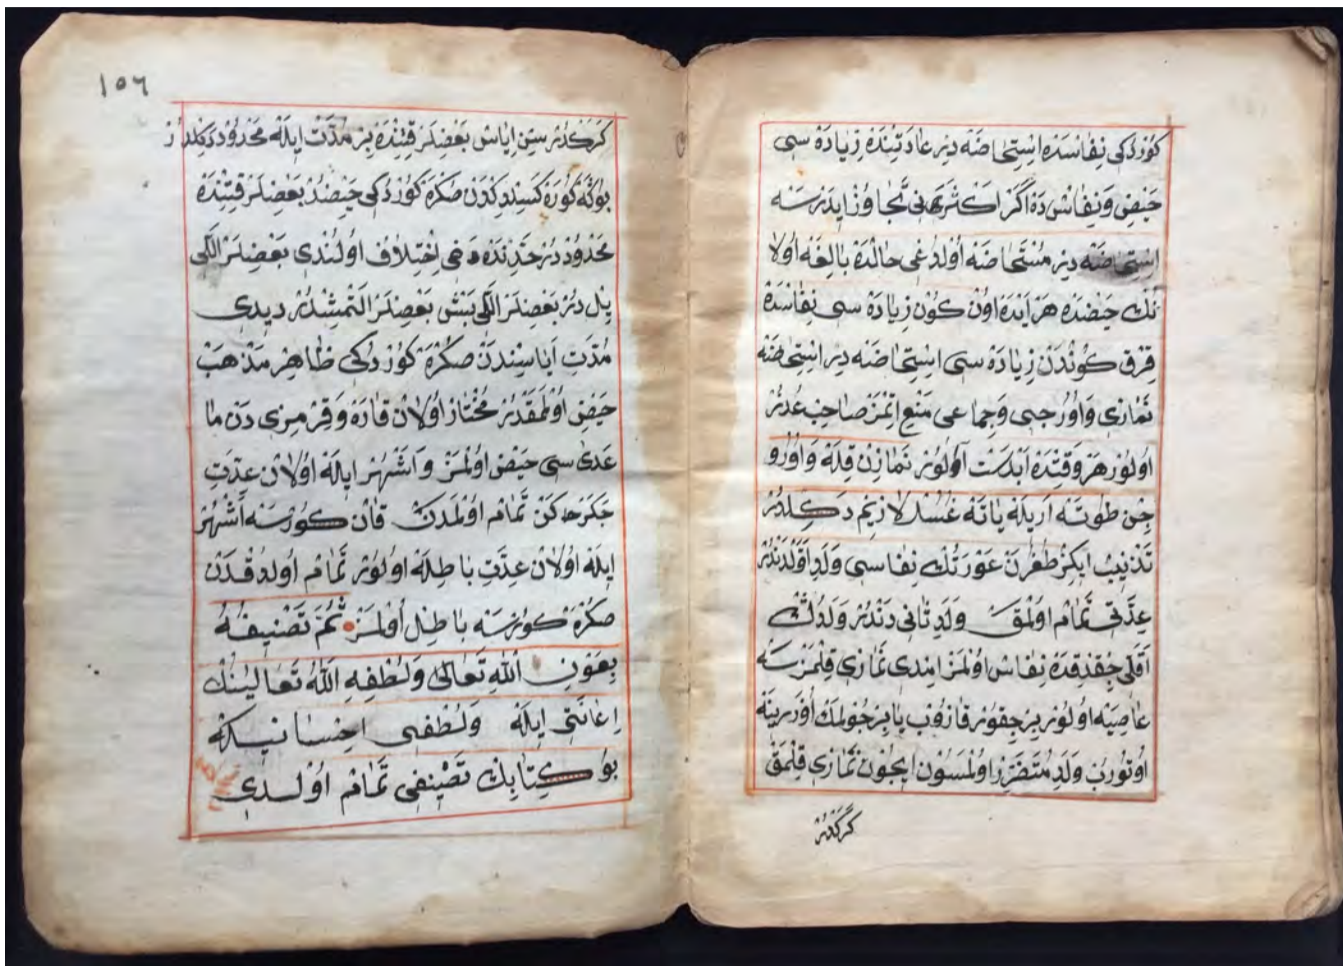 كوردكى نفاسده استحاضه در عادتنده زياده سى
حيض ونفاس ده اگر اكثرهنى تجاوز ايدرسه
استحاضه در مستحاضه اولدغى حالده بالغه اولا
نك حيضده هر آيده اون كون زياده سى نفاسده
قرق كوندن زياده سى استحاضه در استحاضه
نمازى واوروجى وجماعى منع اتمز صاحب عذر
اولور هر وقتده ابدست آلور نمازن قله واورو
جن طوته اريله ياته غسل لازم دكلدر
تذنيب ايكز طغرن عورتك نفاسى ولد اولدندر
عدتى تمام اولمق ولد ثانى دندر ولدك
اقلى چقدقده نفاس اولمز امدى نمازى قلمزسه
عاصيه اولور بر چقور قازوب يا بر چولمك اوزرينه
اوتورب ولد متضرر اولمسون ايچون نمازى قلمق
كركدر
١٥٦
كركدر سن اياس بعضلر قتنده بر مدت ايله محدود دكلدر
بوكه كوره كسيلدكدن صكره كوردكى حيضدر بعضلر قتنده
محدوددر حدنده دخى اختلاف اولندى بعضلر اللى
يل در بعضلر اللى بش بعضلر التمشدر ديدى
مدت اياسيندن صكره كوردكى ظاهر مذهب
حيض اولمقدر مختار اولان قاره وقرمزى دن ما
عدى سى حيض اولمز واشهر ايله اولان عدت
چكرحكن تمام اولمدن قان كورسه اشهر
ايله اولان عدت باطله اولور تمام اولدقدن
صكره كورسه باطل اولمز ثم تصنيفه
بعون الله تعالى ولطفه الله تعالينك
اعانتى ايله ولطفى احسانيله
بو كتابك تصنيفى تمام اولدى